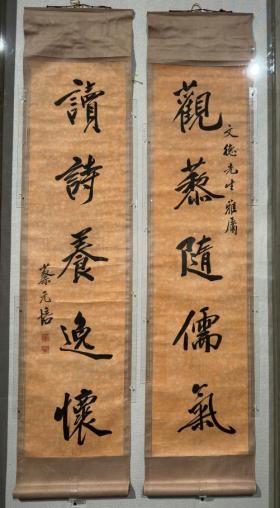 觀隨儒氣
文德先生雅属
讀詩養逸懷
蔡元培